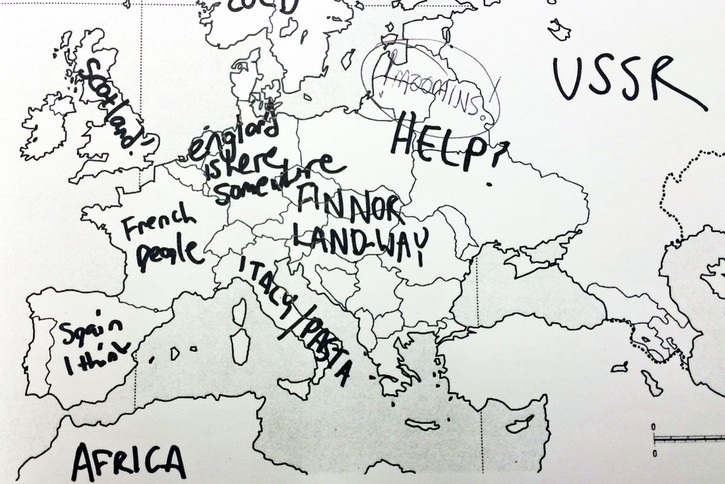 COLD
USSR
Scotland!
! mooolains!
HELP?
england
is here
somewhere
FINNOR
LAND-WAY
French
people
ITALY/PASTA
Spain
I think
AFRICA
0
0